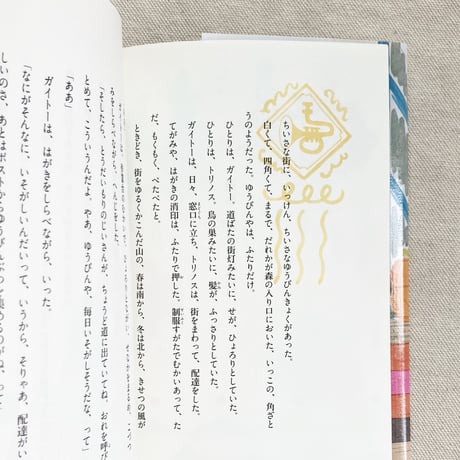 ちいさな街に、いっけん、ちいさなゆうびんきょくがあった。
白くて、四角くて、まるで、だれかが森の入り口においた、いっこの、角ざと
うのようだった。ゆうびんやは、ふたりだけ。
ひとりは、ガイトー。道ばたの街灯みたいに、せが、ひょろりとしていた。
ひとりは、トリノス。鳥の巣みたいに、髪が、ふっさりとしていた。
ガイトーは、日々、窓口に立ち、トリノスは、街をまわって、配達をした。
てがみや、はがきの消印は、ふたりで押した。制服すがたでむかいあって、た
だ、もくもく、ぺたぺたと。
ときどき、街をゆるくかこんだ山の、春は南から、冬は北から、きせつの風が
「そしたら、とうだいもりのじいさんが、ちょうど道に出ていてね、おれを呼び
とめて、こういうんだよ。やあ、ゆうびんや、毎日いそがしそうだな、って」
「ああ」
ガイトーは、はがきをしらべながら、いった。
「なにがそんなに、いそがしいんだね、って、いうから、そりゃあ、配達がい